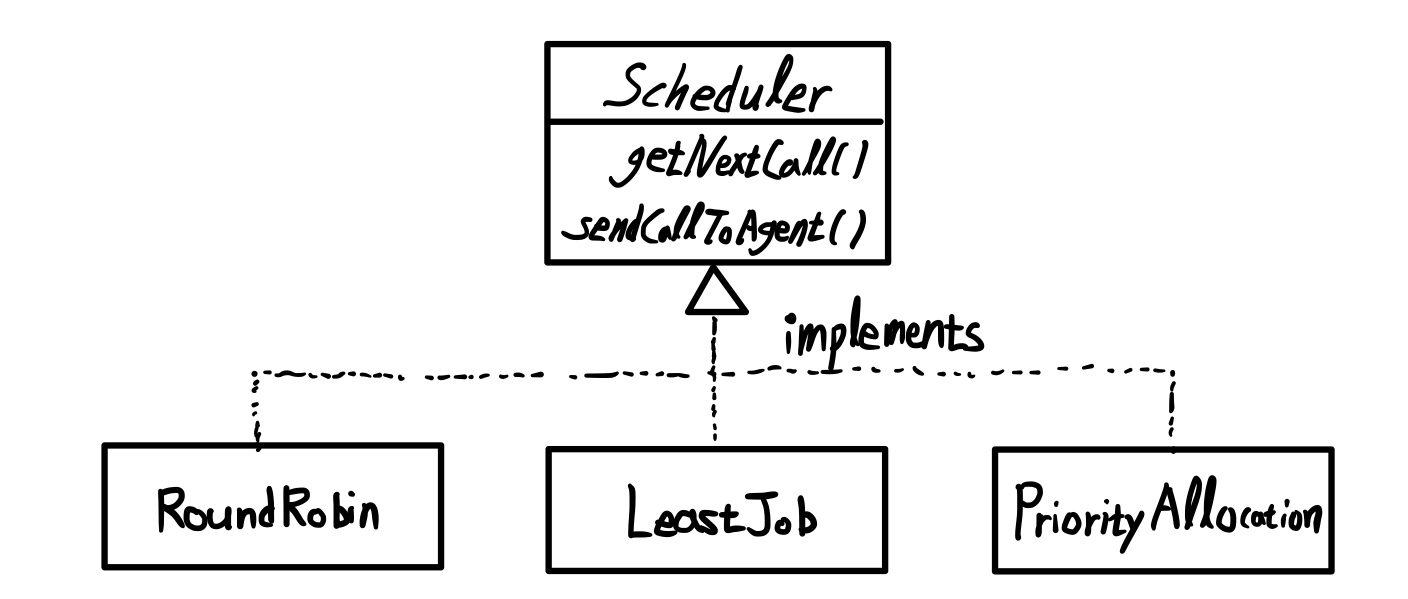 Scheduler
getNextCall()
sendCallToAgent()
implements
RoundRobin
LeastJob
PriorityAllocation